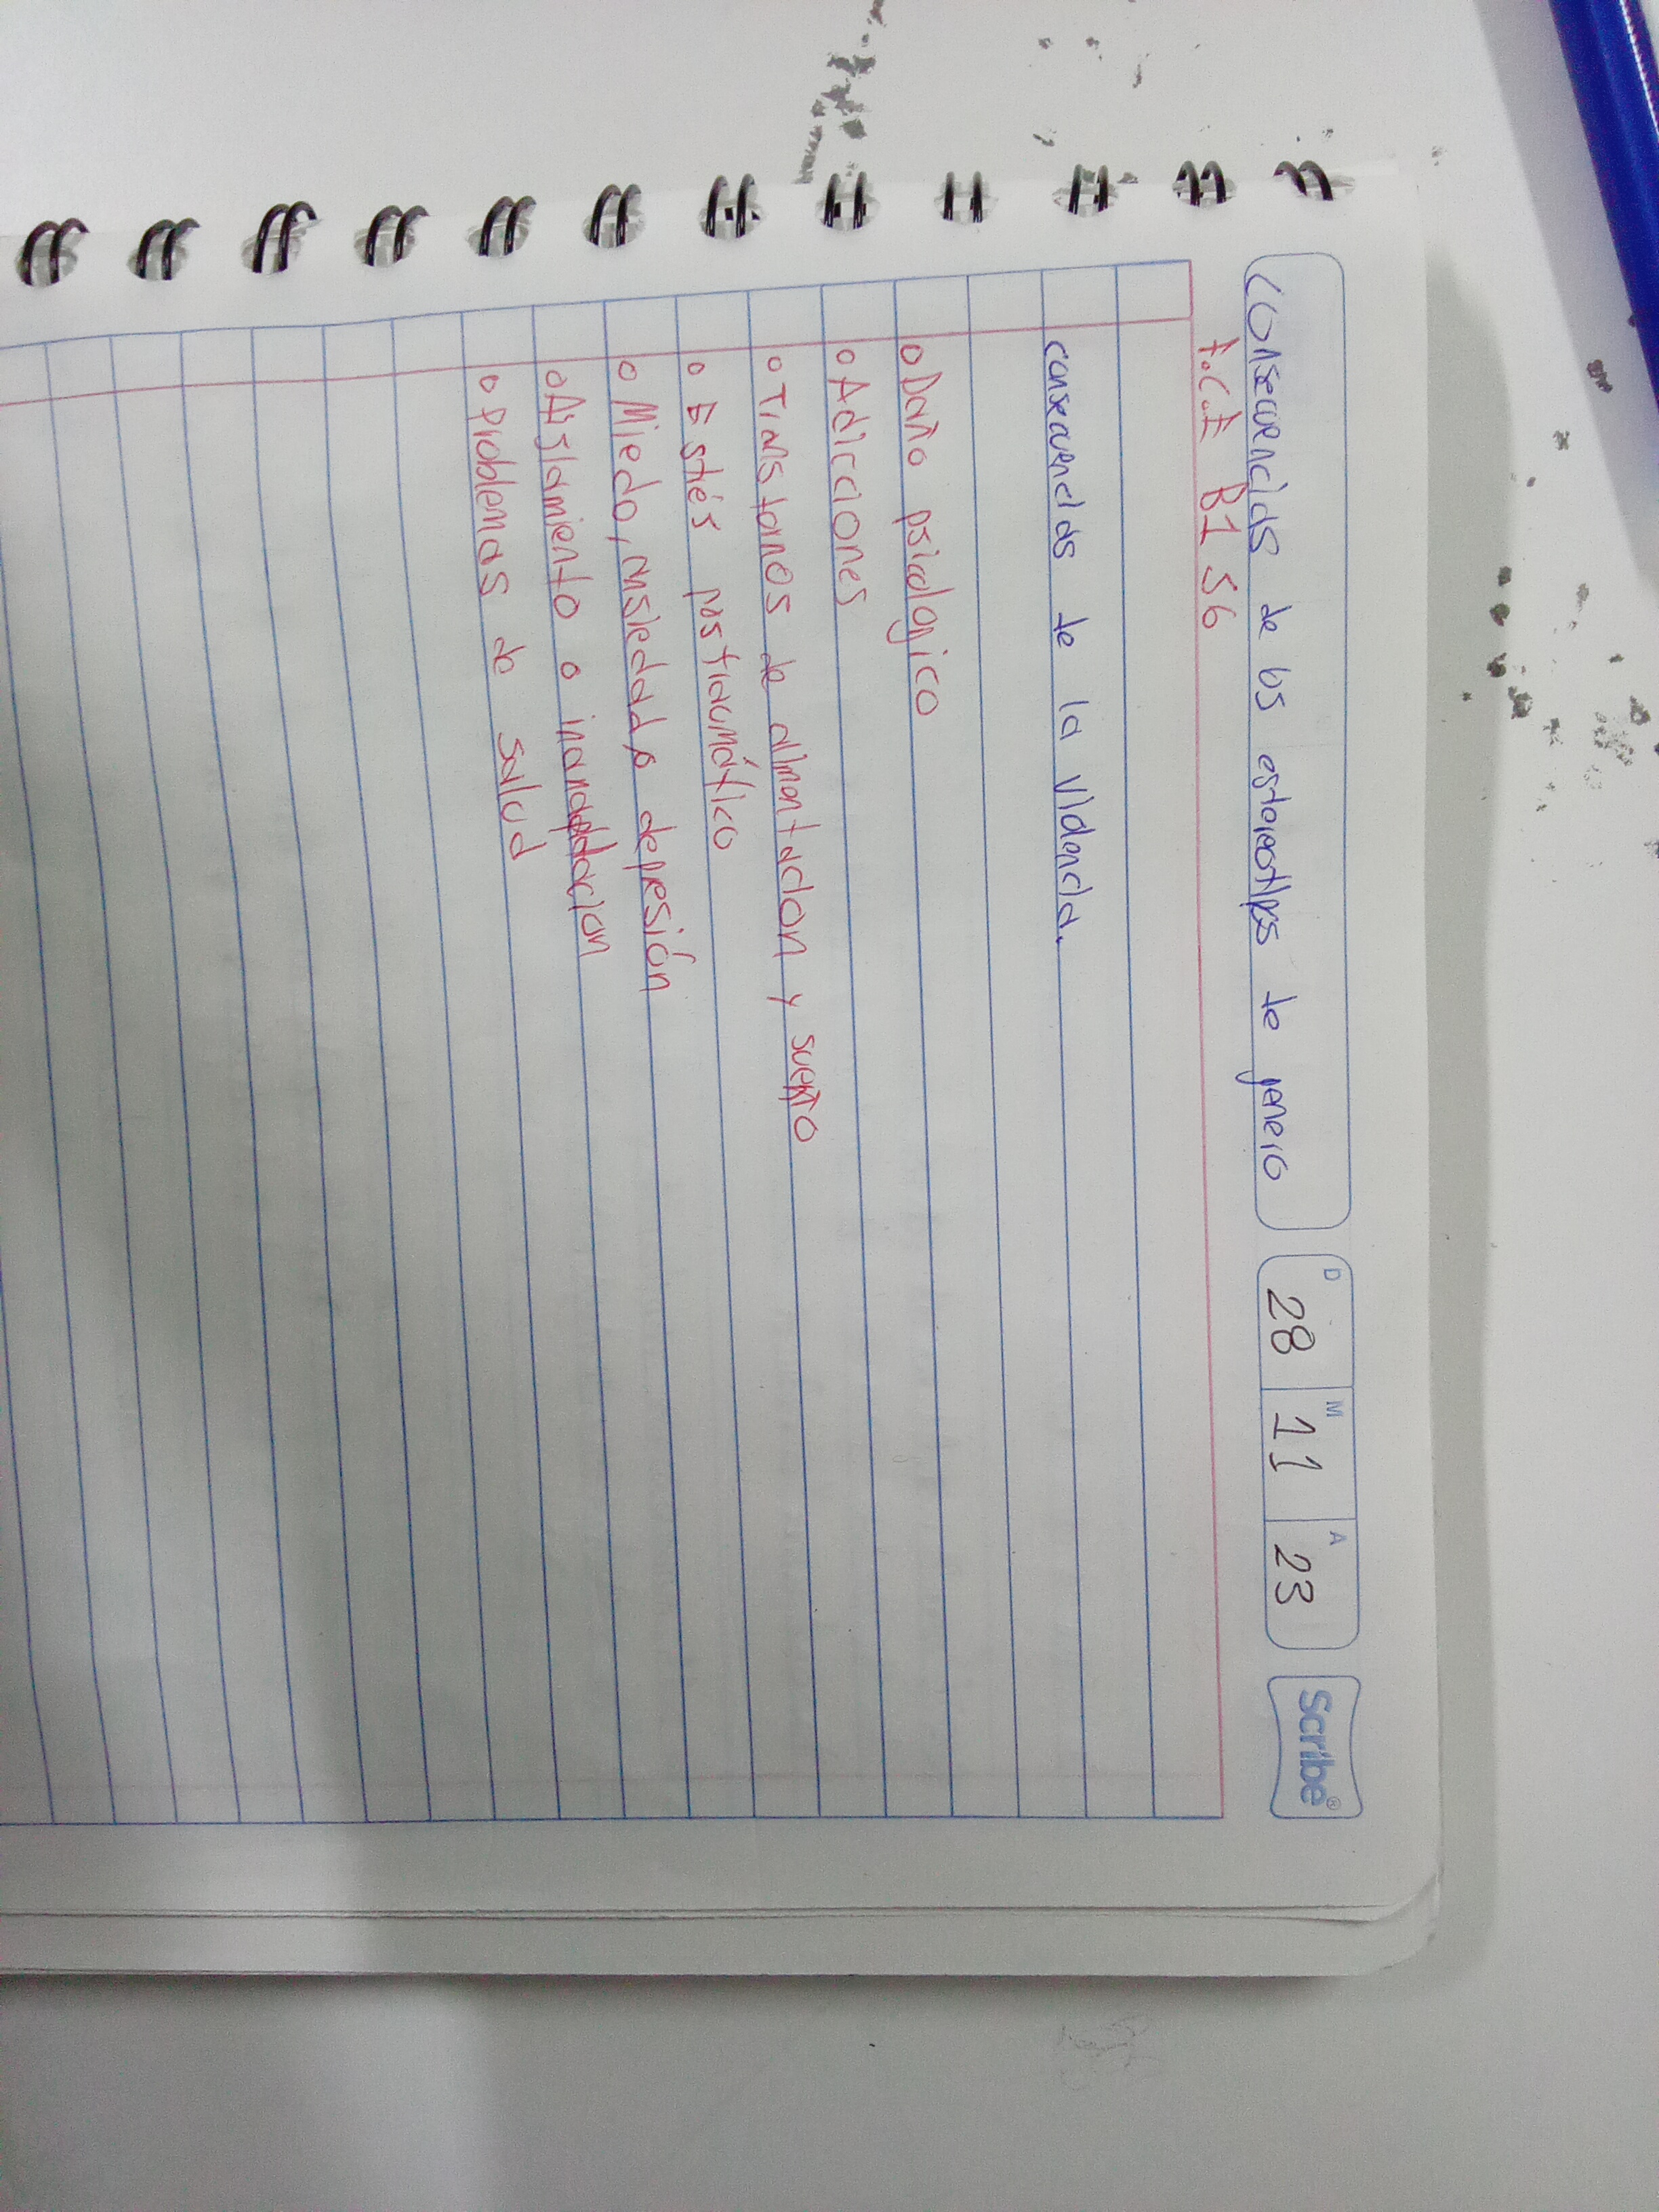 Consecuencias de los estereotipos de genero
D 28 M 11 A 23
Scribe®
F.C.E B1 S6
consecuencias de la violencia.
o Daño psicologico
o Adicciones
o Transtornos de alimentacion y sueño
o Estrés postraumático
o Miedo, ansiedad o depresión
o Aislamiento o
o Problemas de salud